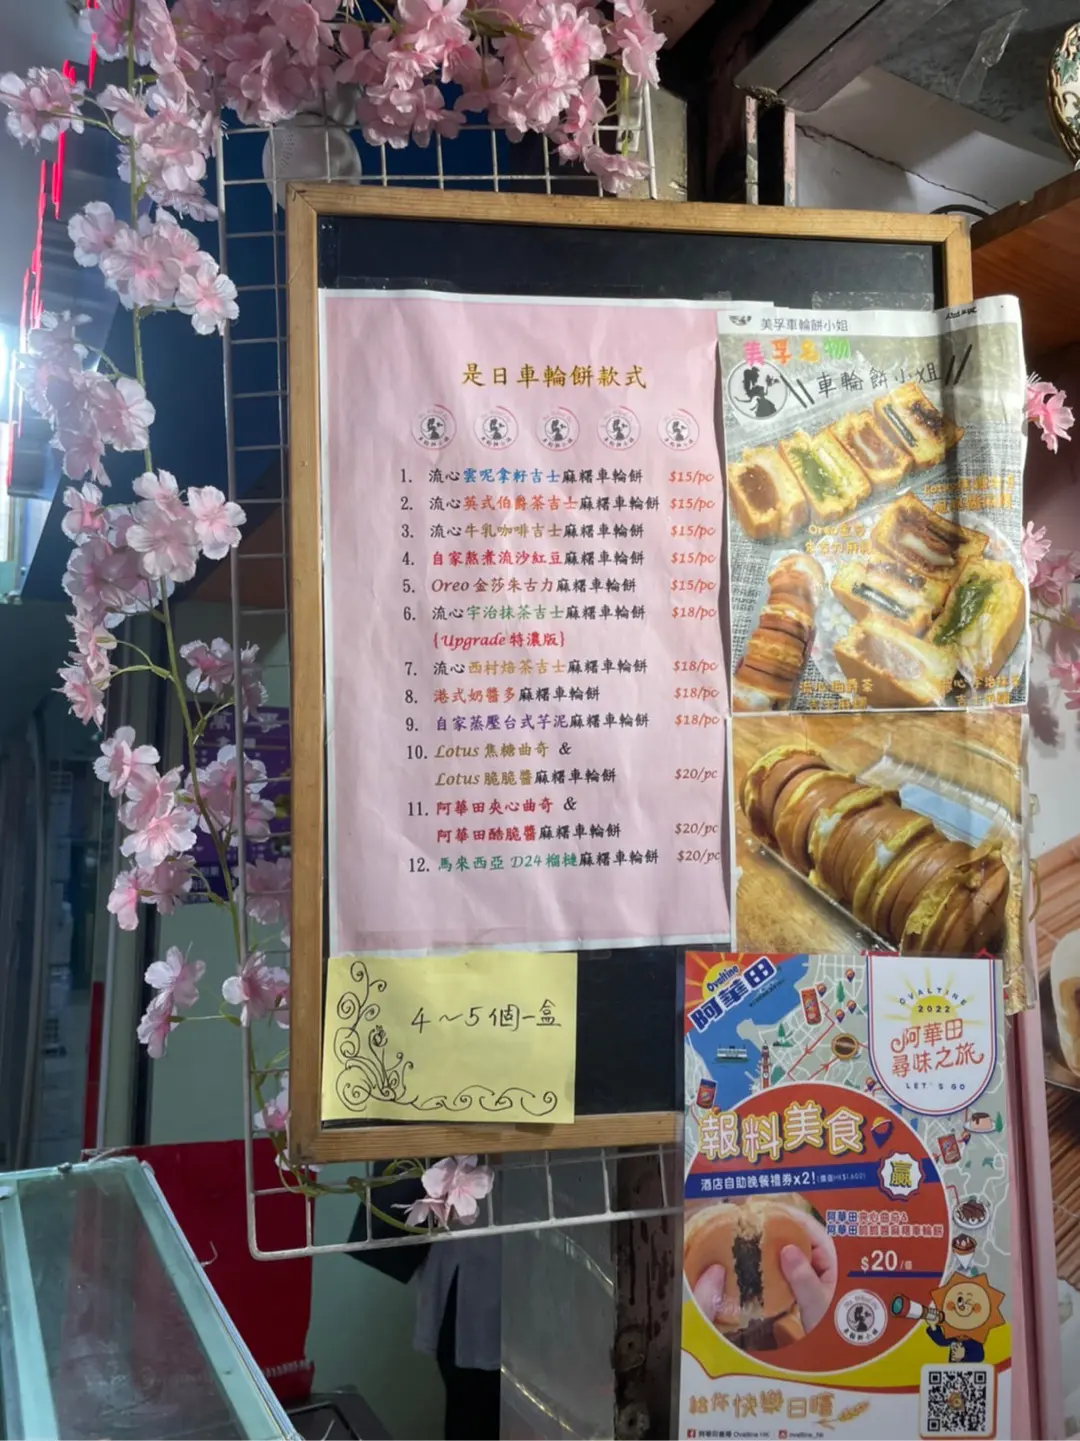 是日車輪餅款式
1. 流心雲呢拿籽吉士麻糬車輪餅 $15/pc
2. 流心英式伯爵茶吉士麻糬車輪餅 $15/pc
3. 流心牛乳咖啡吉士麻糬車輪餅 $15/pc
4. 自家熬煮流沙紅豆麻糬車輪餅 $15/pc
5. Oreo 金莎朱古力麻糬車輪餅 $15/pc
6. 流心宇治抹茶吉士麻糬車輪餅 $18/pc
{Upgrade 特濃版}
7. 流心西村焙茶吉士麻糬車輪餅 $18/pc
8. 港式奶醬多麻糬車輪餅 $18/pc
9. 自家蒸壓台式芋泥麻糬車輪餅 $18/pc
10. Lotus 焦糖曲奇 &
Lotus 脆脆醬麻糬車輪餅 $20/pc
11. 阿華田夾心曲奇 &
阿華田酷脆醬麻糬車輪餅 $20/pc
12. 馬來西亞 D24 榴槤麻糬車輪餅 $20/pc
4～5個一盒
美孚車輪餅小姐
美孚名物
車輪餅小姐
Ovaltine
阿華田
OVALTINE
2022
阿華田
尋味之旅
LET'S GO
報料美食
贏
酒店自助晚餐禮券x2!
阿華田夾心曲奇&
阿華田脆脆醬麻糬車輪餅
$20/個
車輪餅小姐
給你快樂日喧
阿華田 Ovaltine HK ovaltine_hk